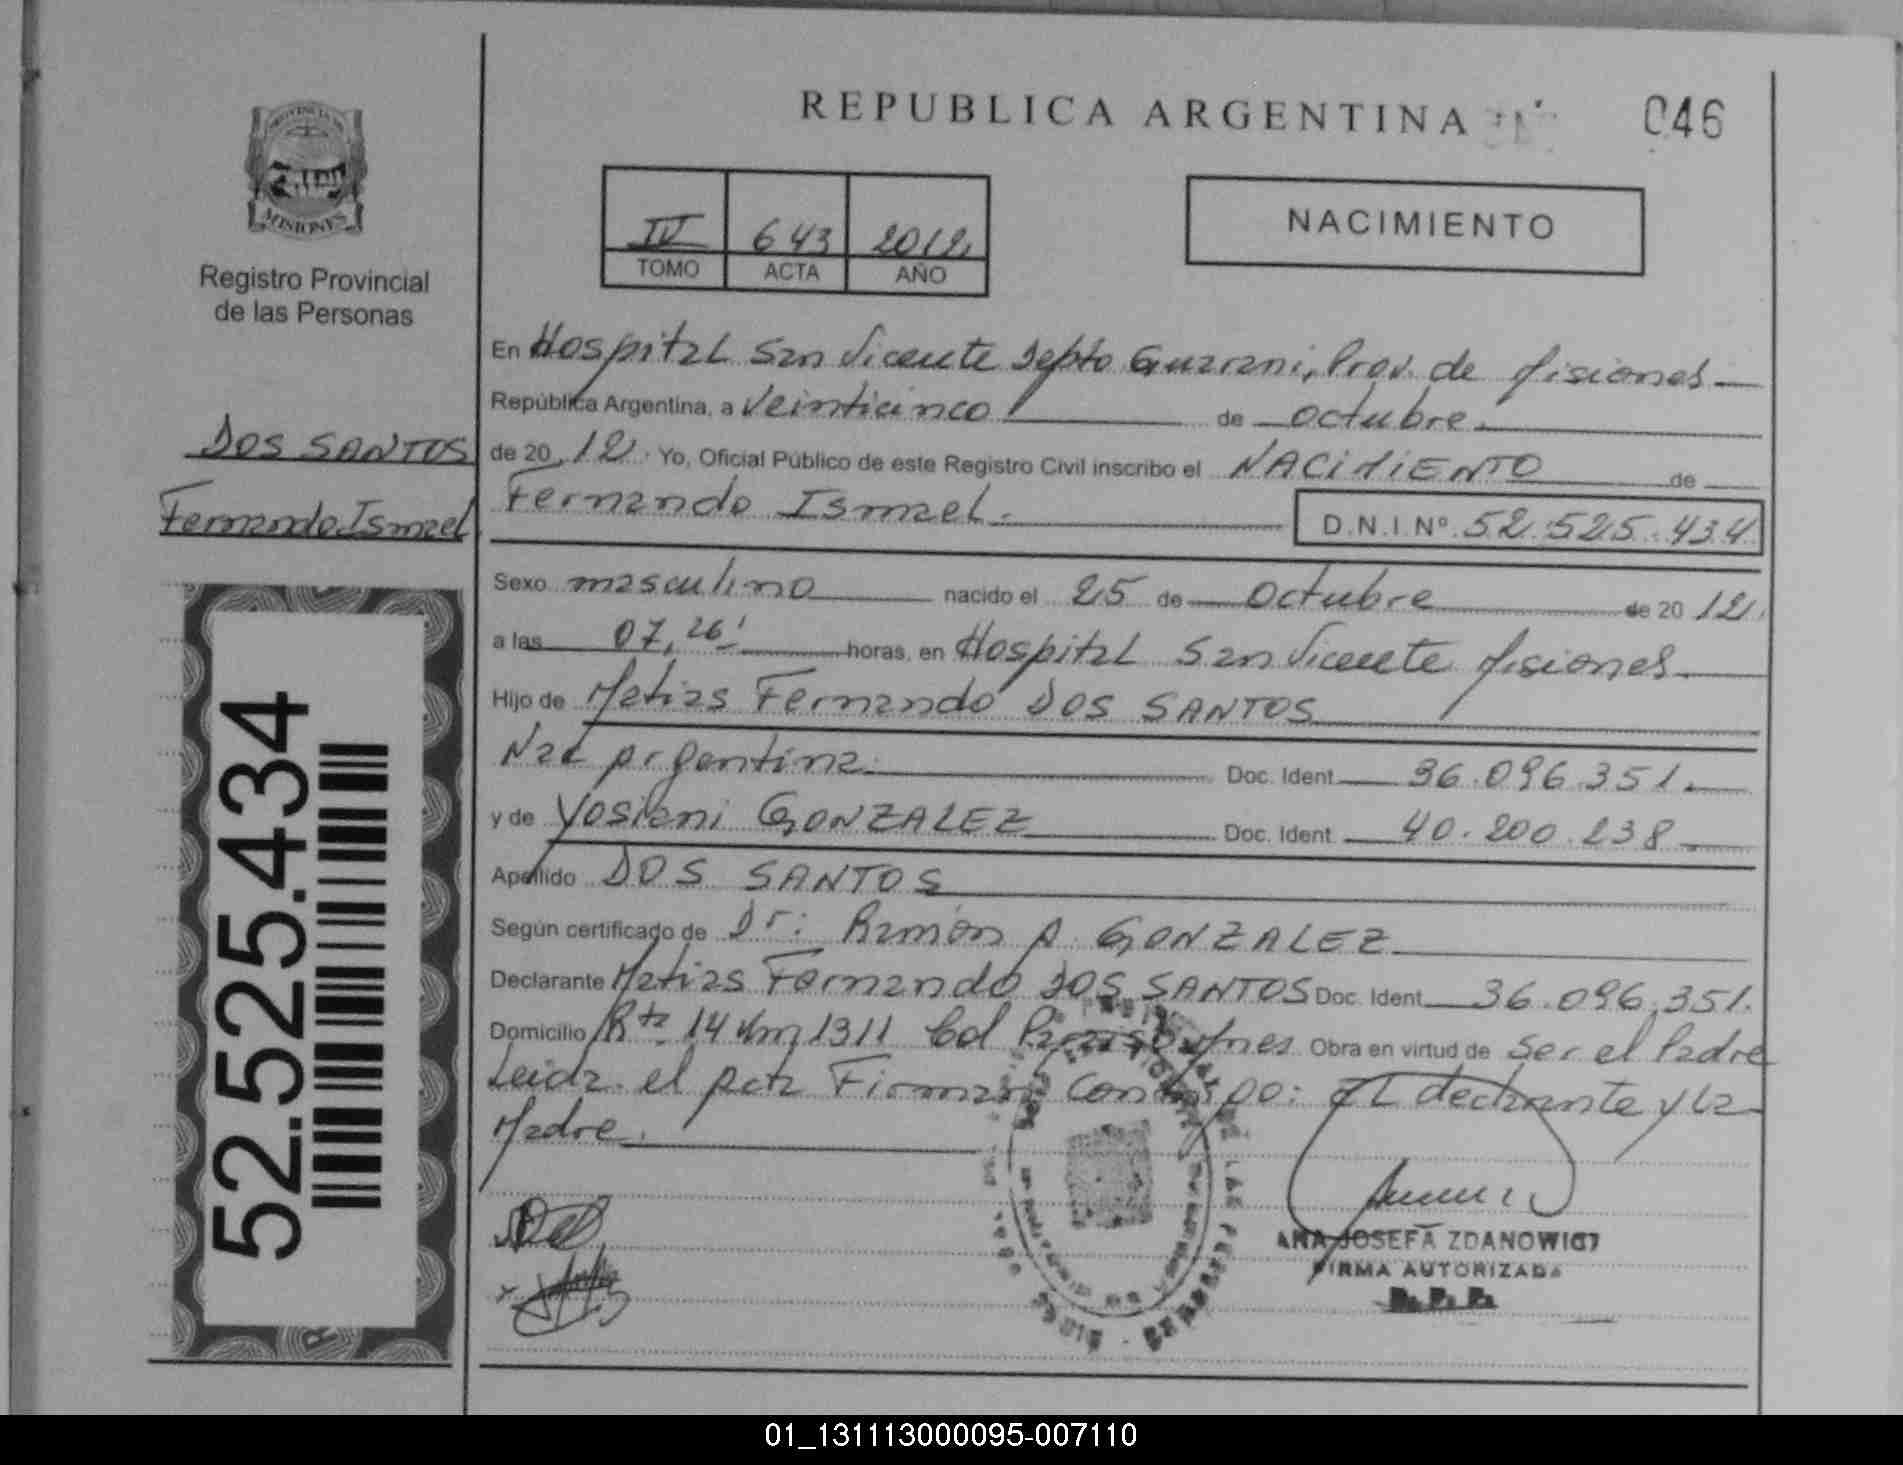 REPUBLICA ARGENTINA
046
PROVINCIA DE
MISIONES
Registro Provincial
de las Personas
IV 643 2012
TOMO ACTA AÑO
NACIMIENTO
DOS SANTOS
Fernando Ismael
52.525.434
En Hospital San Vicente Depto Guarani, Prov. de Misiones
República Argentina, a Veinticinco de octubre
de 20 12. Yo, Oficial Público de este Registro Civil inscribo el NACIMIENTO de
Fernando Ismael. D.N.I.Nº 52.525.434
Sexo masculino nacido el 25 de Octubre de 20 12.
a las 07,26' horas, en Hospital San Vicente Misiones
Hijo de Matias Fernando DOS SANTOS
Nac Argentina. Doc. Ident. 36.096.351.
y de Yosiani GONZALEZ Doc. Ident. 40.200.238
Apellido DOS SANTOS
Según certificado de Dr: Ramón A. GONZALEZ
Declarante Matias Fernando DOS SANTOS Doc. Ident. 36.096.351.
Domicilio Rta 14 Km 1311 Col Paraiso Mnes Obra en virtud de Ser el Padre
Leida el acta Firman Conmigo: EL declarante y La
Madre.
ANA JOSEFA ZDANOWICZ
FIRMA AUTORIZADA
01_131113000095-007110